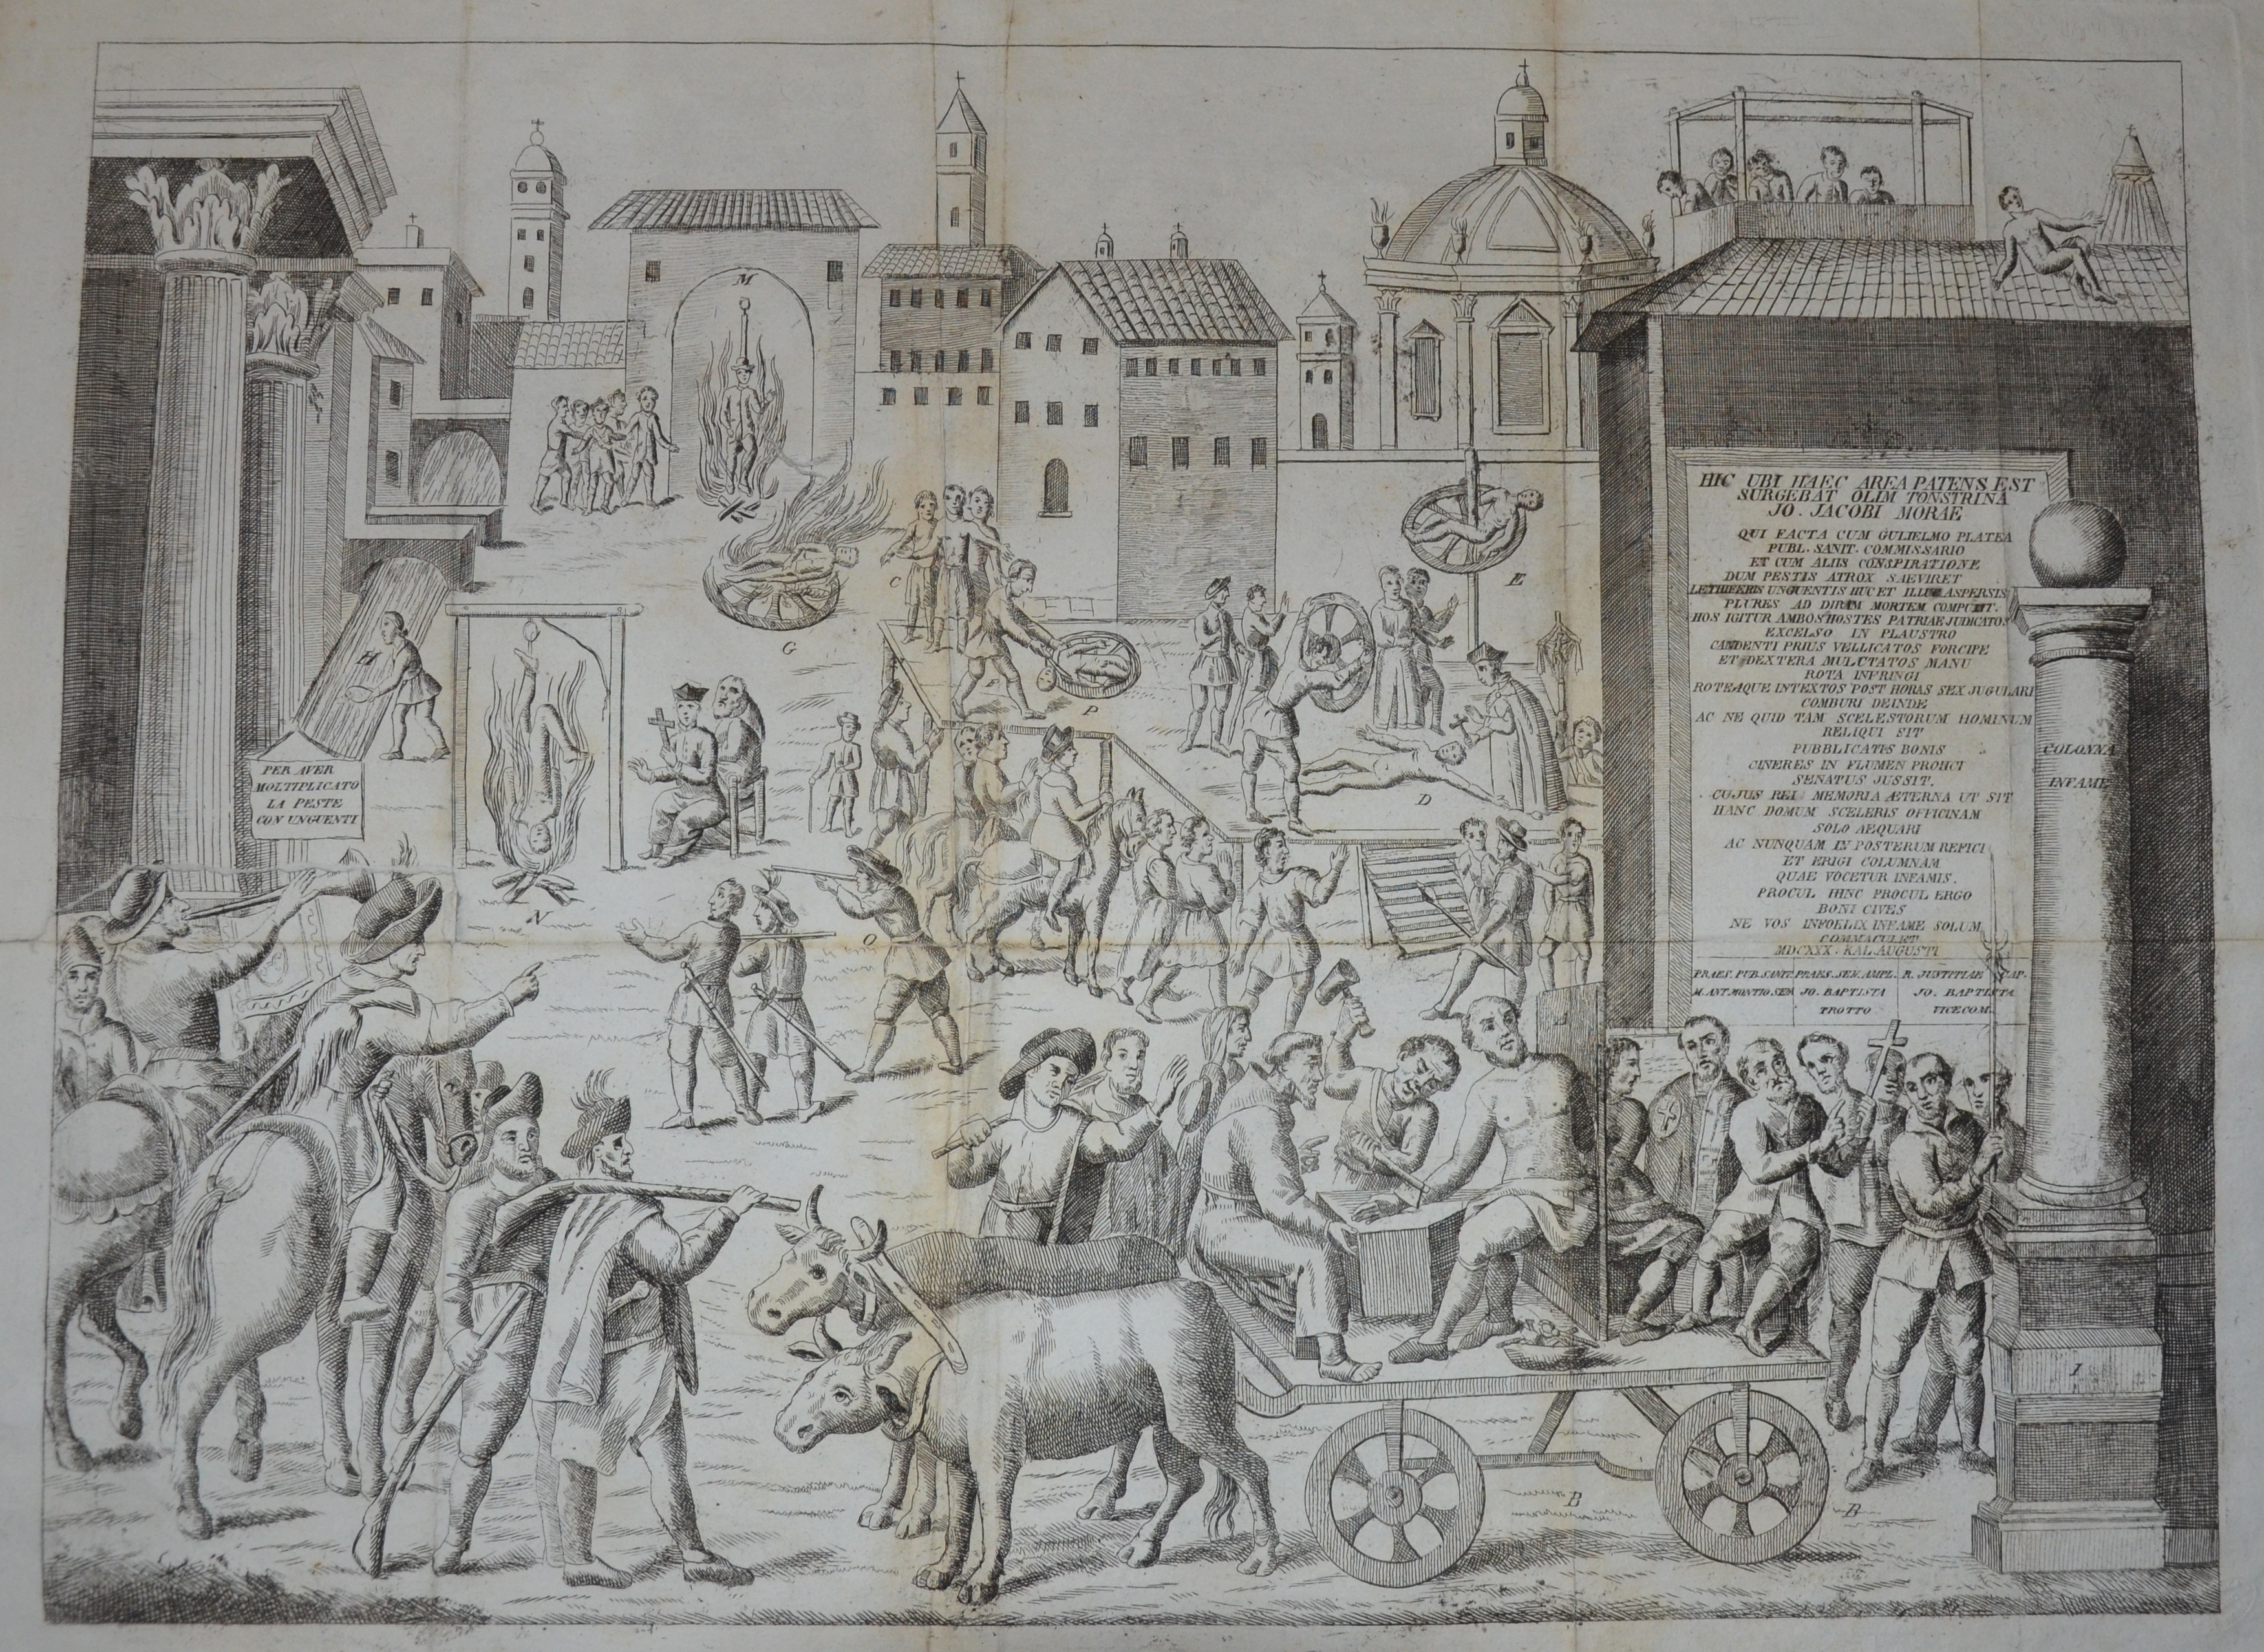 M
C
G
E
H
P
D
N
O
B
B
I
PER AVER
MOLTIPLICATO
LA PESTE
CON UNGUENTI
HIC UBI HAEC AREA PATENS EST
SURGEBAT OLIM TONSTRINA
JO. JACOBI MORAE
QUI FACTA CUM GULIELMO PLATEA
PUBL. SANIT. COMMISSARIO
ET CUM ALIIS CONSPIRATIONE
DUM PESTIS ATROX SAEVIRET
LETHIFERIS UNGUENTIS HUC ET ILLUC ASPERSIS
PLURES AD DIRAM MORTEM COMPULIT.
HOS IGITUR AMBOS HOSTES PATRIAE JUDICATOS
EXCELSO IN PLAUSTRO
CANDENTI PRIUS VELLICATOS FORCIPE
ET DEXTERA MULCTATOS MANU
ROTA INFRINGI
ROTEAQUE INTEXTOS POST HORAS SEX JUGULARI
COMBURI DEINDE
AC NE QUID TAM SCELESTORUM HOMINUM
RELIQUI SIT
PUBBLICATIS BONIS
CINERES IN FLUMEN PROIICI
SENATUS JUSSIT.
CUJUS REI MEMORIA ÆTERNA UT SIT
HANC DOMUM SCELERIS OFFICINAM
SOLO AEQUARI
AC NUNQUAM IN POSTERUM REFICI
ET ERIGI COLUMNAM
QUAE VOCETUR INFAMIS.
PROCUL HINC PROCUL ERGO
BONI CIVES
NE VOS INFOELIX INFAME SOLUM
COMMACULET
MDCXXX. KAL. AUGUSTI
PRAES. PUB. SANIT. PRAES. SEN. AMPL. R. JUSTITIAE CAP.
M. ANT. MONTIO SEN JO. BAPTISTA JO. BAPTISTA
TROTTO VICECOM.
COLONNA
INFAME